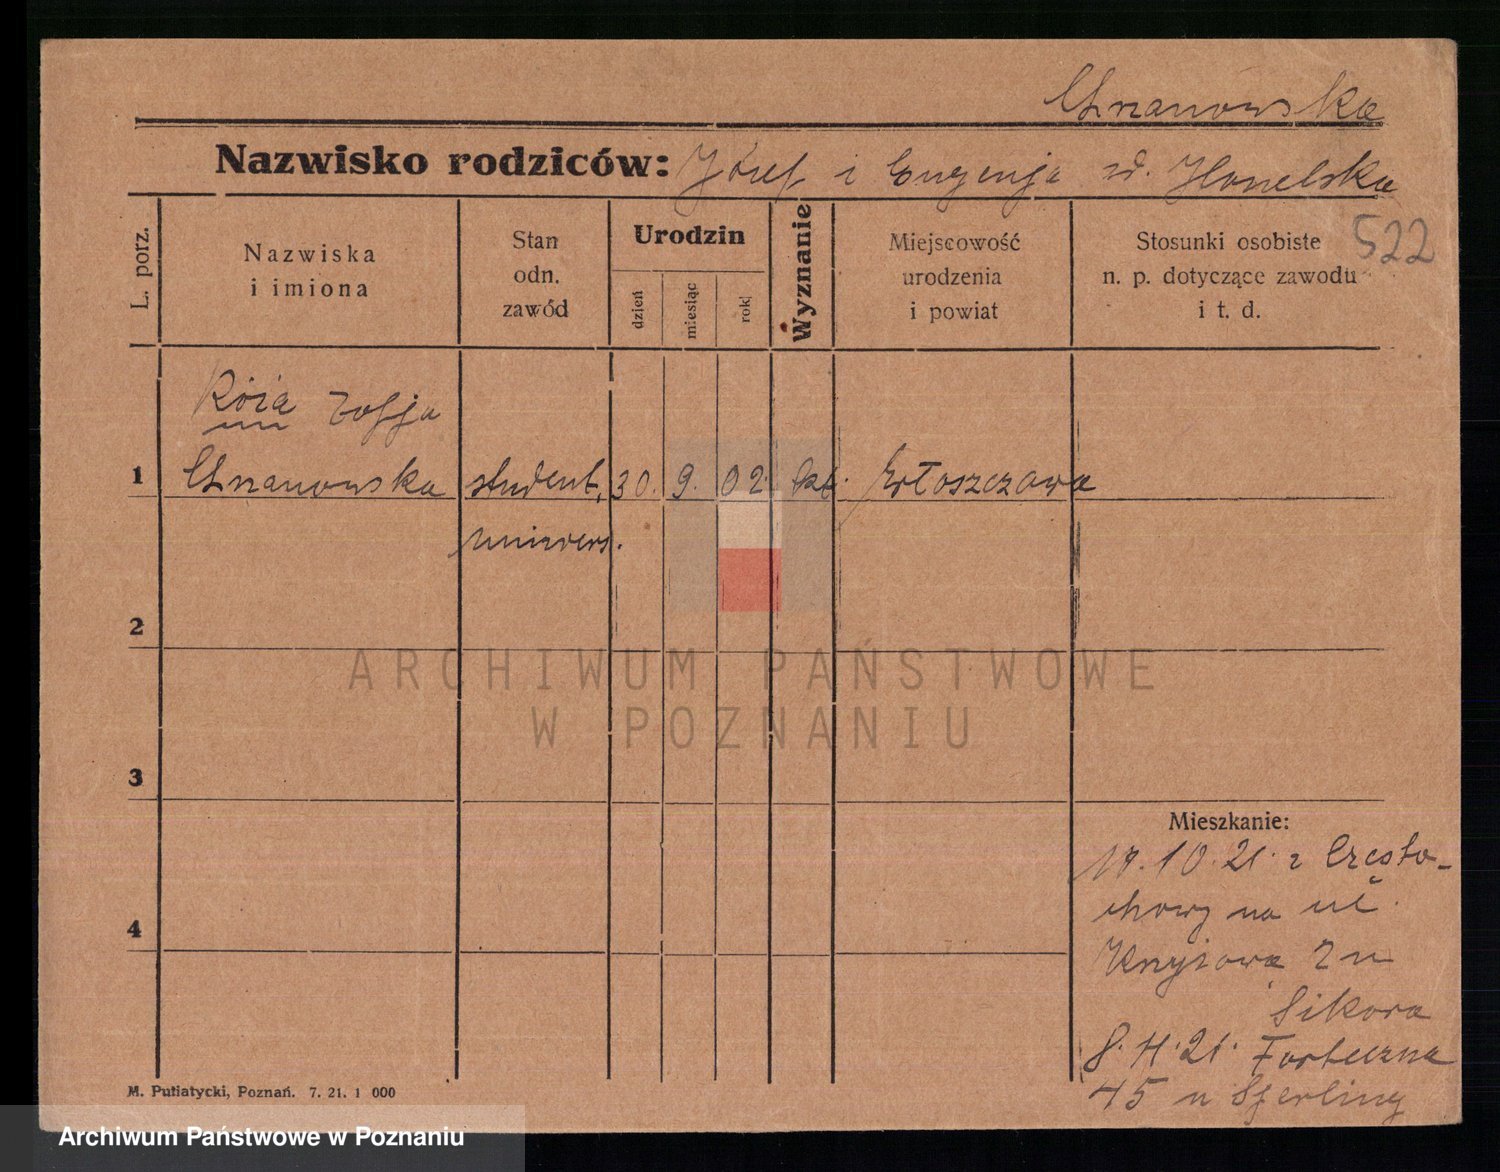 Chrzanowska
Nazwisko rodziców: Józef i Eugenja zd.
522
L. porz.
Nazwiska
i imiona
Stan
odn.
zawód
Urodzin
dzień
miesiąc
rok
Wyznanie
Miejscowość
urodzenia
i powiat
Stosunki osobiste
n. p. dotyczące zawodu
i t. d.
Róża Zofja
1 Chrzanowska student. 30. 9. 02. kat. Włoszczowa
uniwers.
2
3
4
Mieszkanie:
10. 21. z Często-
chowy na ul.
2 u
Sikora
8. 11. 21. Forteczna
45 u Sperling
M. Putiatycki, Poznań. 7. 21. 1 000
ARCHIWUM PAŃSTWOWE
W POZNANIU
Archiwum Państwowe w Poznaniu